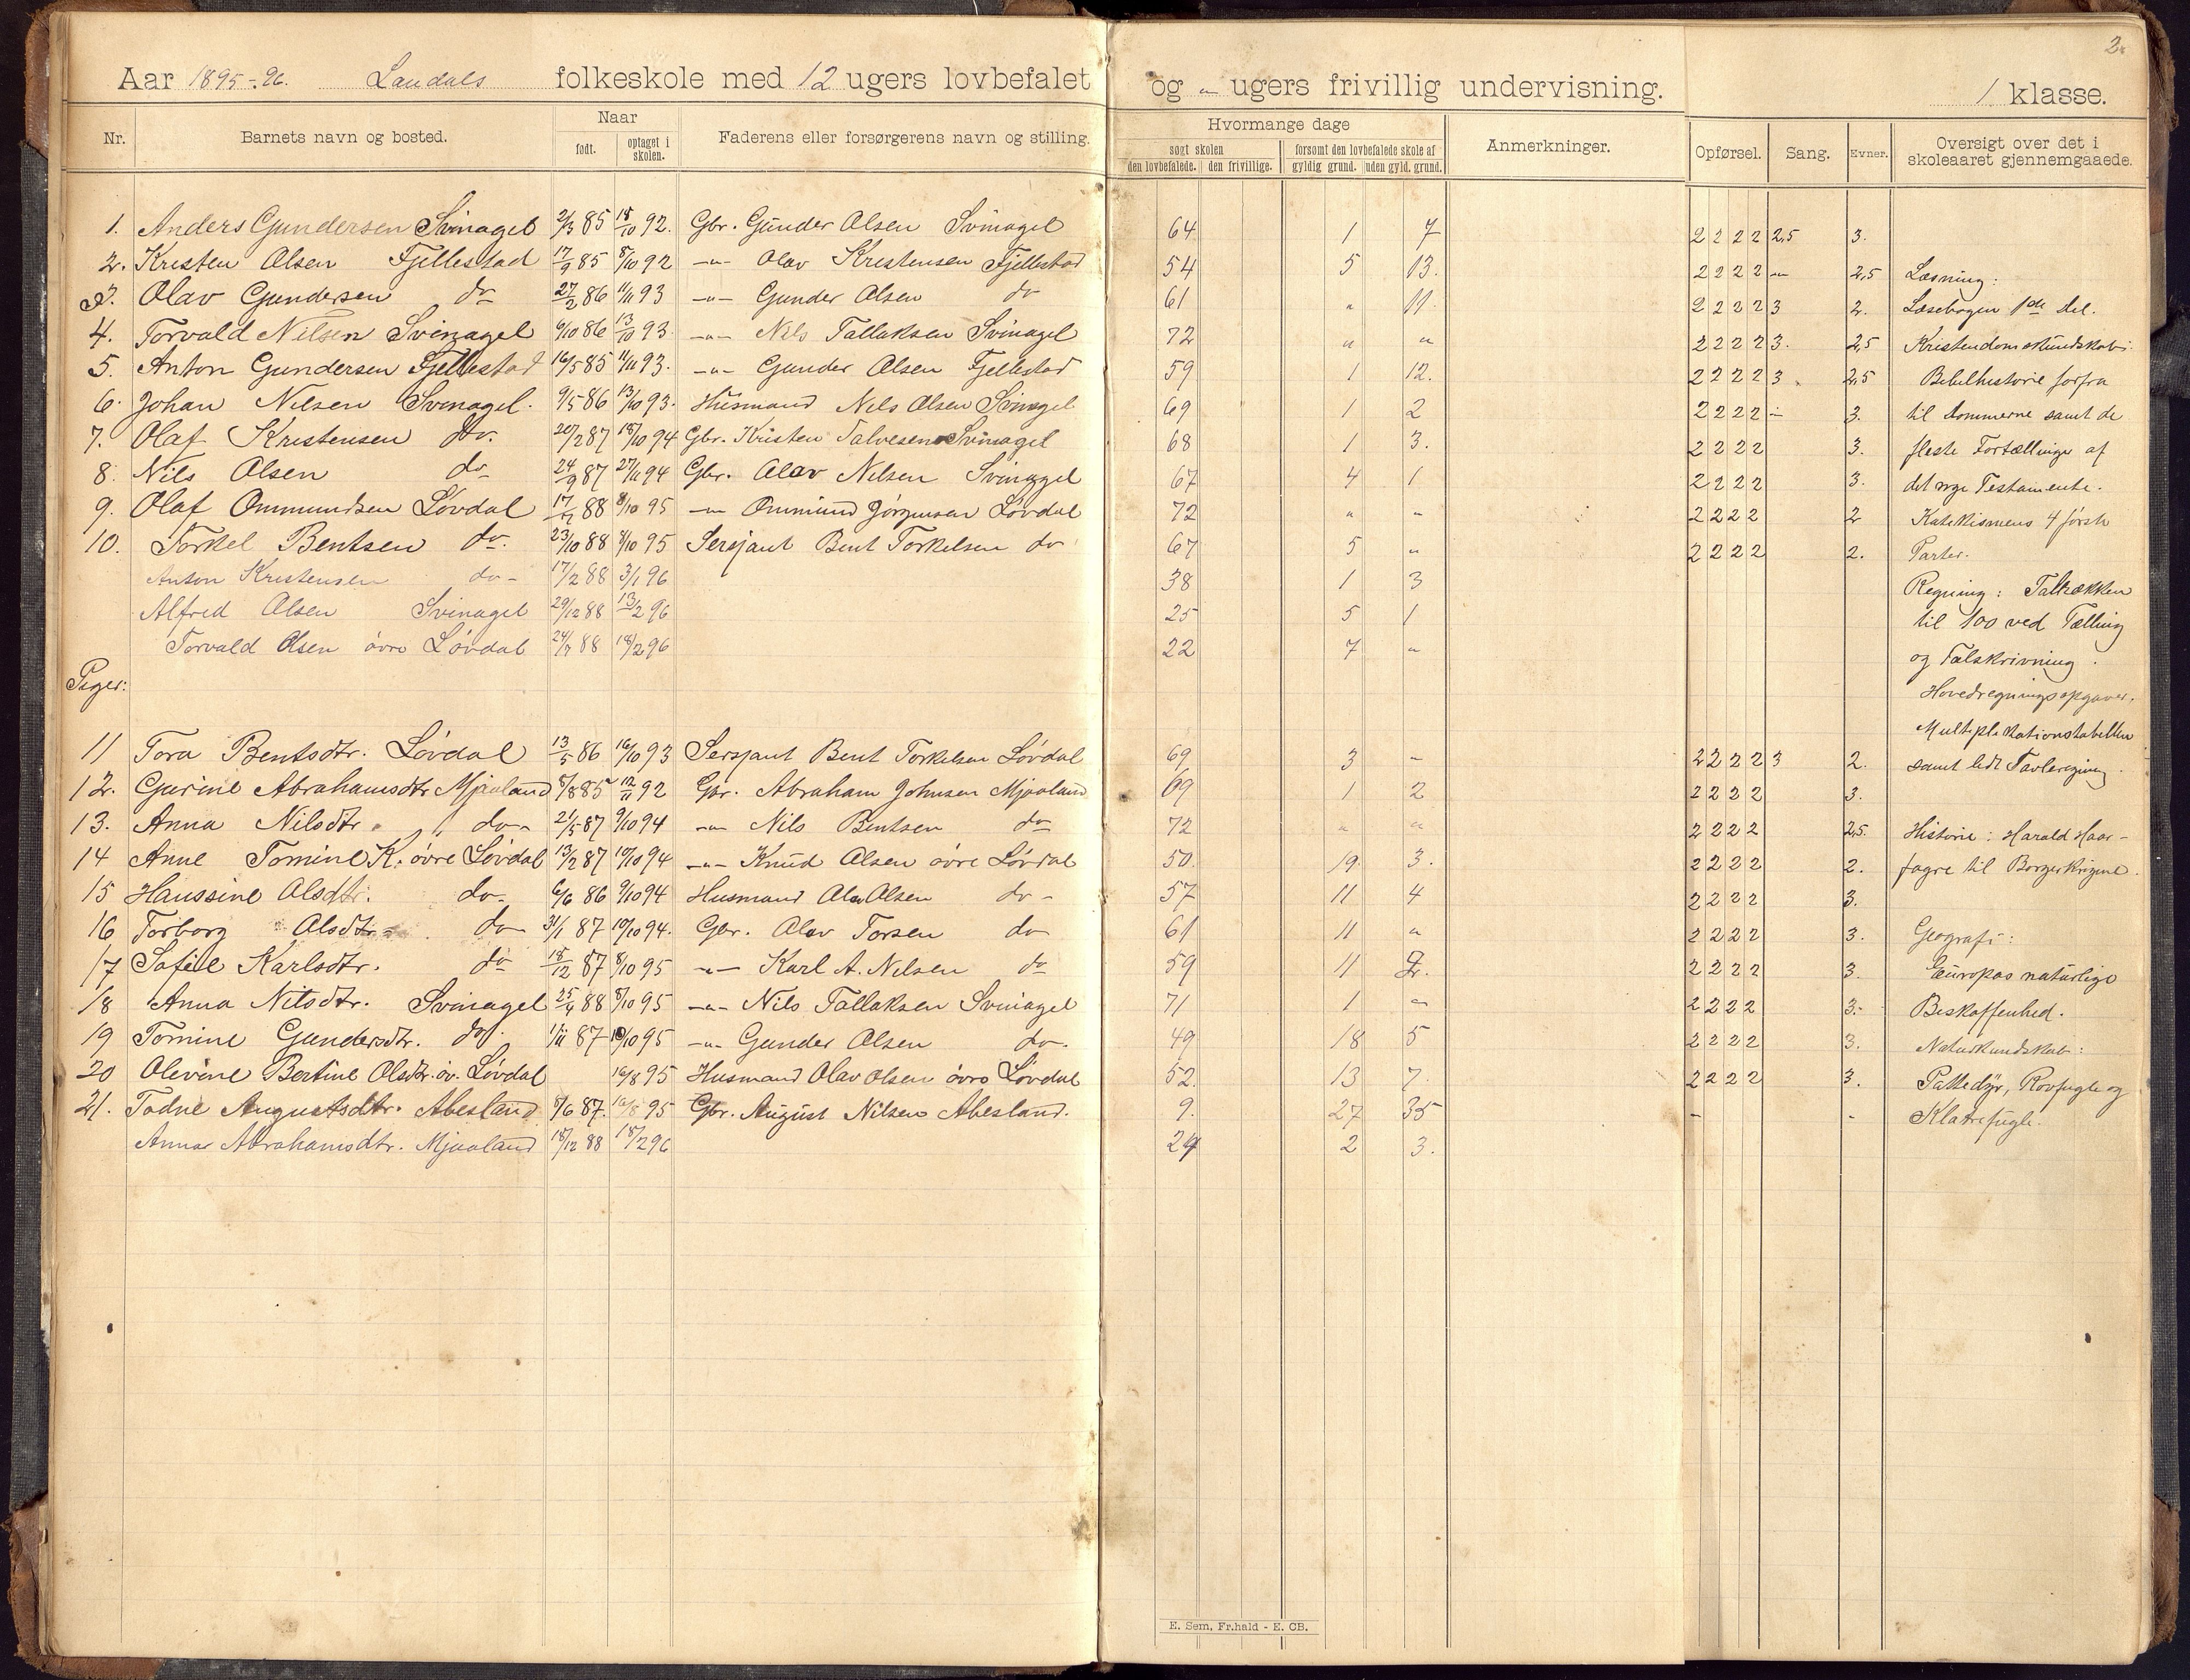 2.
Aar 1895-96. Laudals folkeskole med 12 ugers lovbefalet og " ugers frivillig undervisning. 1 klasse.
Nr. Barnets navn og bosted. Naar født. optaget i skolen. Faderens eller forsørgerens navn og stilling. Hvormange dage søgt skolen den lovbefalede. den frivillige. forsømt den lovbefalede skole af gyldig grund. uden gyld. grund. Anmerkninger. Opførsel. Sang. Evner. Oversigt over det i skoleaaret gjennemgaaede.
1. Anders Gundersen Svinagel 2/3 85 18/10 92. Gbr. Gunder Olsen Svinagel 64 1 7 2 2 2 2 2,5 3.
2. Kristen Olsen Fjellestad 17/9 85 8/10 92 -"- Olav Kristensen Fjellestad 54 5 13. 2 2 2 2 - 2,5 Læsning:
3. Olav Gundersen do 27/2 86 11/11 93 -"- Gunder Olsen do 61 " 11 2 2 2 2 3 2. Læsebogen 1ste del.
4. Torvald Nilsen Svinagel 6/10 86 13/10 93. -"- Nils Tallaksen Svinagel 72 " " 2 2 2 2 3. 2,5 Kristendomskundskab:
5. Anton Gundersen Fjellestad 16/5 85 11/11 93. -"- Gunder Olsen Fjellestad 59 1 12. 2 2 2 2 3. 2,5 Bibelhistorie forfra
6. Johan Nilsen Svinagel. 9/5 86 13/10 93. Husmand Nils Olsen Svinagel 69 1 2 2 2 2 2 - 3. til dommerne samt de
7. Olaf Kristensen do. 20/2 87 18/10 94 Gbr. Kristen Salvesen Svinagel 68 1 3. 2 2 2 2 3. fleste Fortællinger af
8. Nils Olsen do 24/9 87 27/11 94 Gbr. Olav Nilsen Svinagel 67 4 1 2 2 2 2 3. det nye Testamente.
9. Olaf Ommundsen Løvdal 17/12 88 8/10 95 -"- Ommund Jørgensen Løvdal 72 " " 2 2 2 2 2 Katekismens 4 første
10. Torkel Bentsen do. 23/10 88 8/10 95 Sersjant Bent Torkelsen do 67 5 " 2 2 2 2 2. Parter.
Anton Kristensen do- 17/2 88 3/1 96 38 1 3 Regning: Talrækken
Alfred Olsen Svinagel 29/12 88 13/2 96 25 5 1 til 100 ved Tælling
Torvald Olsen øvre Løvdal 24/7 88 18/2 96 22 7 " og Talskrivning.
Piger:
Hovedregningsopgaver.
Multiplikationstabellen
11 Tora Bentsdtr. Løvdal 13/5 86 16/10 93 Sersjant Bent Torkelsen Løvdal 69 3 - 2 2 2 2 3 2. samt lidt Tavleregning.
12. Gurine Abrahamsdtr Mjaaland 8/8 85 12/11 92 Gbr. Abraham Johnsen Mjaaland 69 1 2 2 2 2 2 3.
13. Anna Nilsdtr. do- 21/5 87 9/10 94 -"- Nils Bentsen do 72 " " 2 2 2 2 2,5. Historie: Harald Haar-
14 Anne Tomine K. øvre Løvdal 13/2 87 10/10 94 -"- Knud Olsen øvre Løvdal 50. 19. 3. 2 2 2 2 2. fagre til Borgerkrigene.
15 Haussine Olsdtr. do- 6/6 86 9/10 94 Husmand Ola Olsen do- 57 11 4 2 2 2 2 3.
16 Torborg Olsdtr- do 31/1 87 10/10 94. Gbr. Olav Torsen do 61 11 " 2 2 2 2 3. Geografi:
17 Sofie Karlsdtr. do 18/12 87 8/10 95 -"- Karl A. Nilsen do 59 11 2. 2 2 2 2 3. Europas naturlige
18 Anna Nilsdtr. Svinagel 25/4 88 8/10 95 -"- Nils Tallaksen Svinagel 71 1 " 2 2 2 2 3.- Beskaffenhed.
19 Tomine Gundersdtr. do. 1/11 87 10/10 95 -"- Gunder Olsen do. 49 18 5 2 2 2 2 3. Naturkundskab:
20 Olevine Bertine Olsdtr. øv. Løvdal 16/8 95 Husmand Olav Olsen øvre Løvdal 52. 13 7. 2 2 2 2 3. Pattedyr, Rovfugle og
21. Todne Augustsdtr. Abesland 8/6 87. 16/8 95 Gbr. August Nilsen Abesland. 9. 27 35 - - Klatrefugle.
Anna Abrahamsdtr. Mjaaland 18/12 88 18/2 96 24 2 3.
E. Sem, Fr.hald - E. CB.